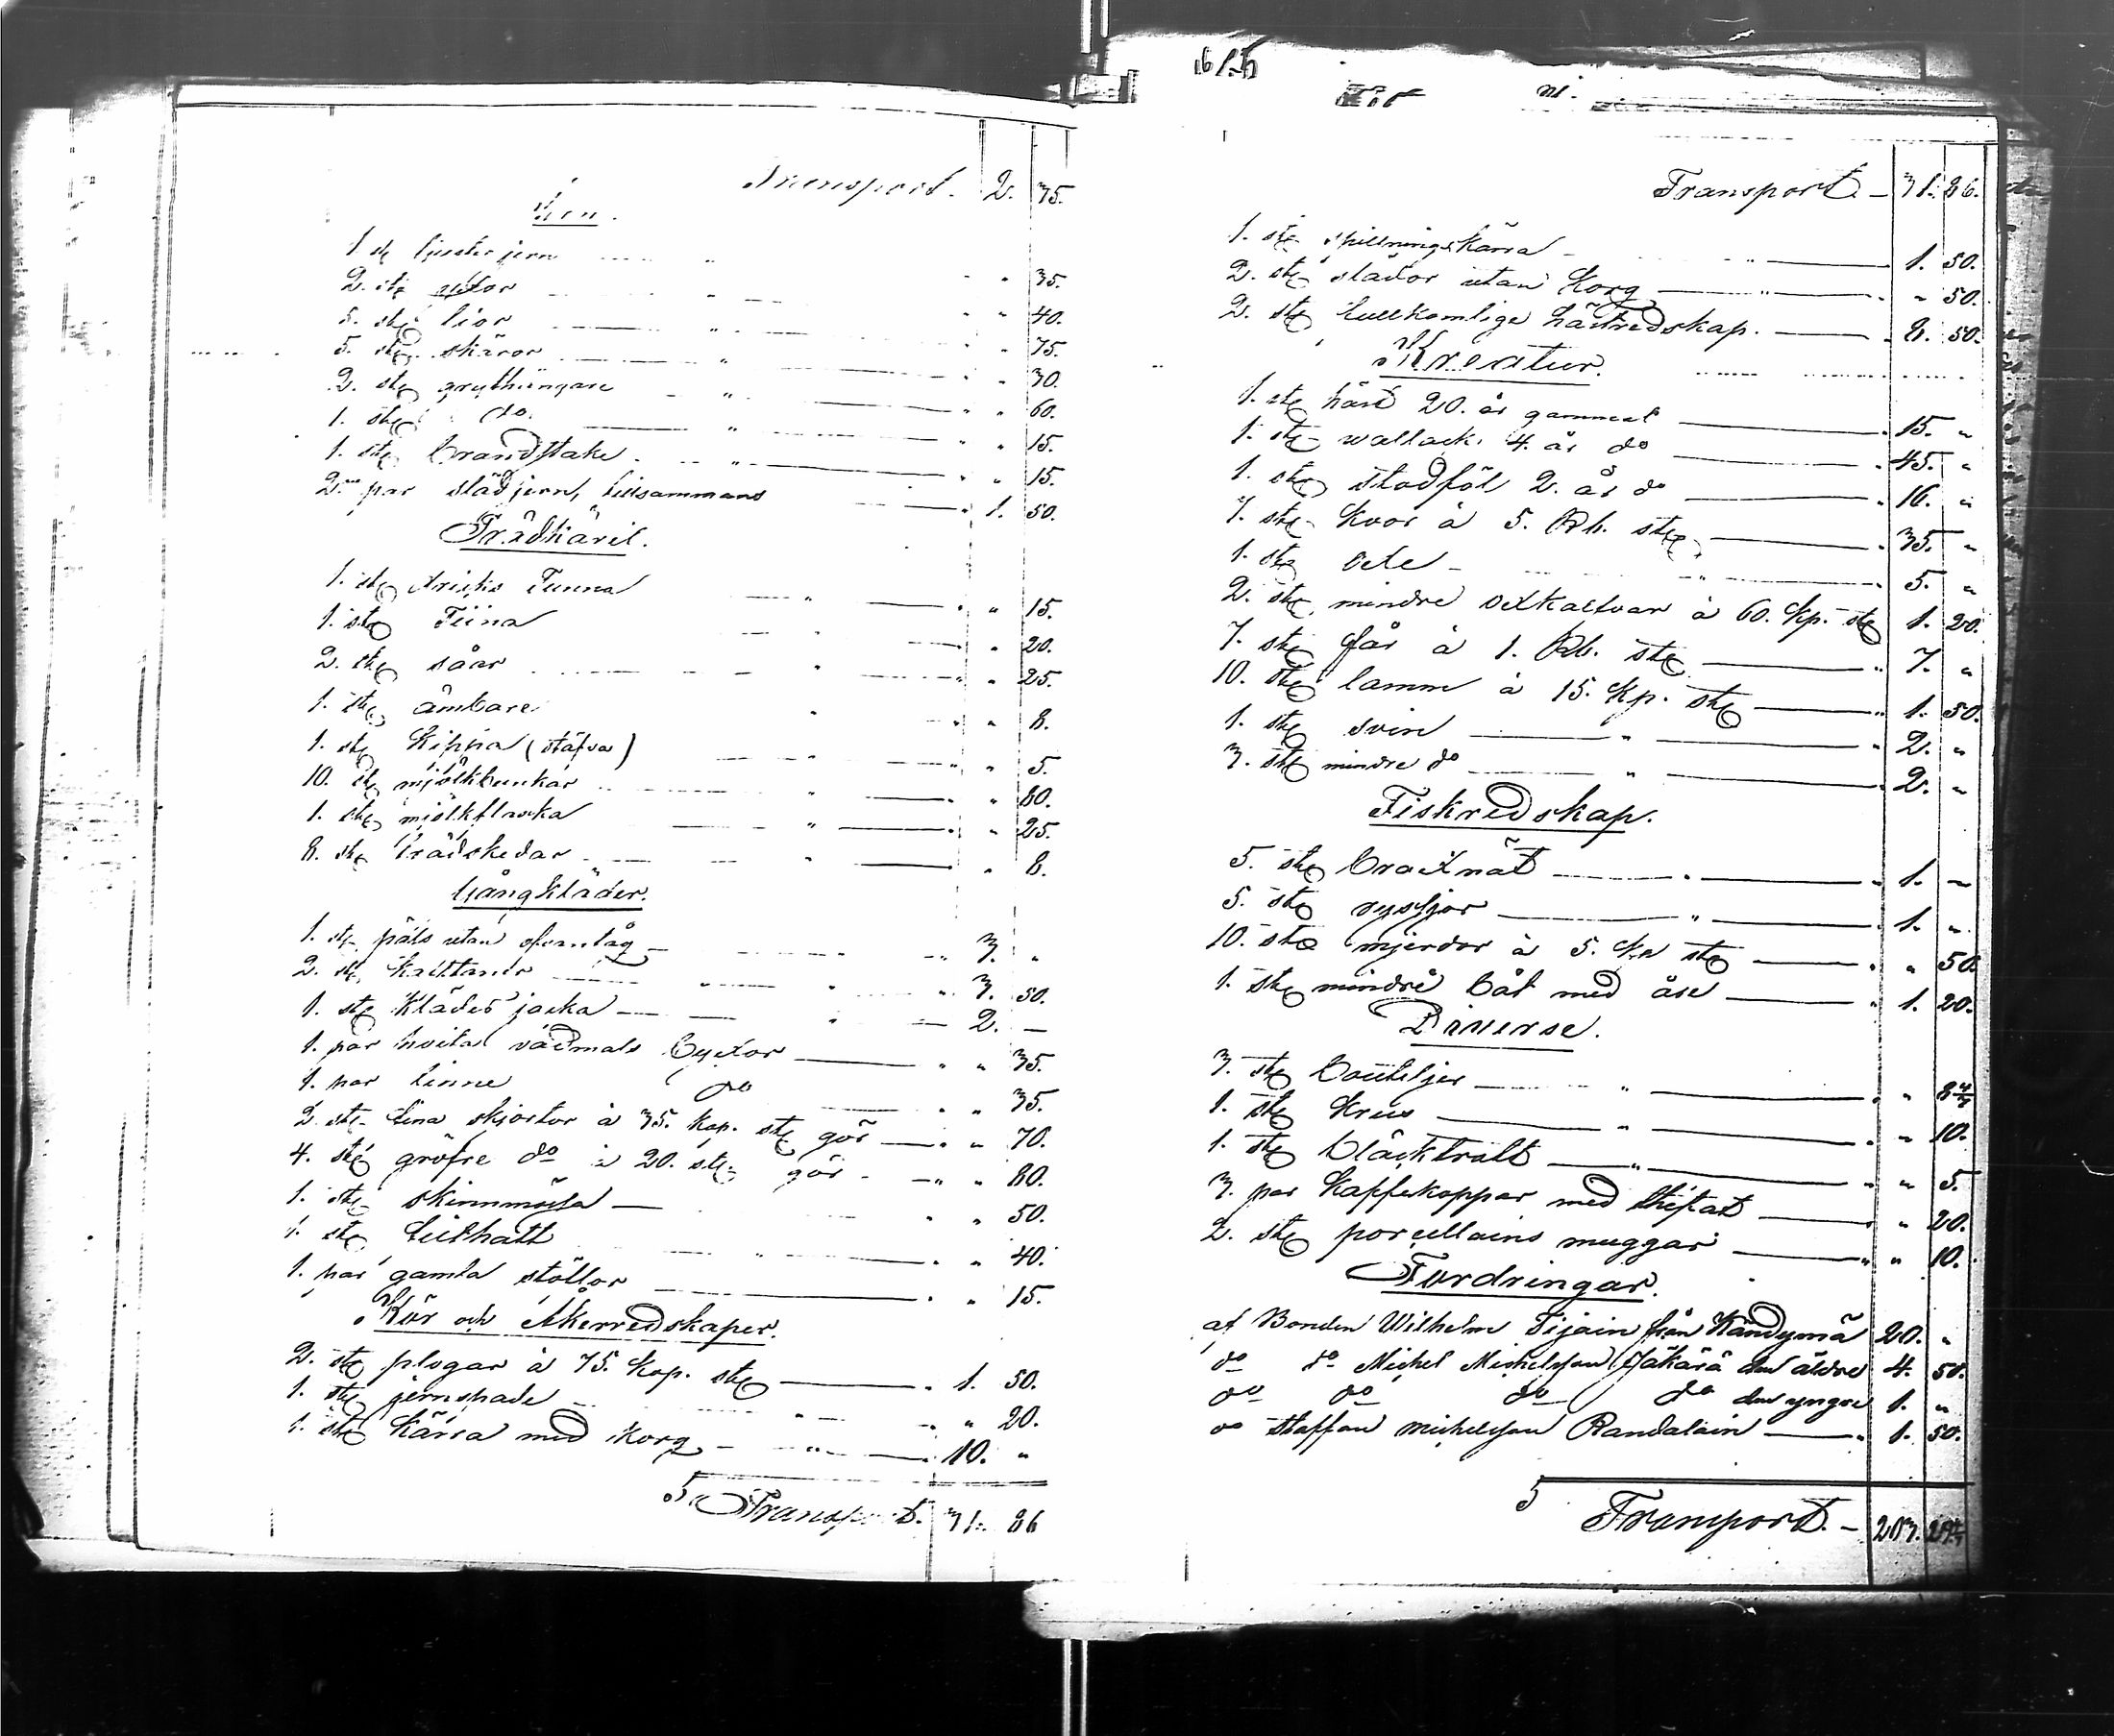 Transport. 2. 35.
1 st ljusterjern " " 35.
2. st yxor " " 40.
5. st lior " " 75.
5. st skäror " " 30.
2. st grythängare " " 60.
1. st do " " 15.
1. st brandstake " " 15.
2. par slädjern, tillsammans 1. 50.
Trädkäril.
1. st dricks Tunna " " 15.
1. st Tiina " 20.
2. st såar " " 25.
1. st ämbare " " 8.
1. st Kippa (stäfva) " " 5.
10. st mjölkbunkar " " 80.
1. st mjölkflaska " " 25.
8. st trädskedar " 8.
Gångkläder.
1. st päls utan ofvantåg 3. "
2. st kaftaner 3. 50.
1. st klädes jacka 2. —
1. par hvita vadmals byxor " " 35.
1. par linne do " " 35.
2 st fina skjortor à 35. kop. st gör " " 70.
4. st gröfre do à 20. st gör " " 80.
1. st skinnmössa " " 50.
1. st filthatt " " 40.
1. par gamla stöflor " " 15.
Kör och Åkerredskaper.
2. st plogar à 75. kop. st 1. 50.
1. st jernspade " " 20.
1. st kärra med korg 10. "
5 Transport. 31. 86
Transport. 31. 86.
1. st spillningskärra 1. 50.
2. st slädor utan korg " 50.
2. st fullkomlige hästredskap. 8. 50.
Kreatur.
1. st häst 20. år gammal 15. "
1. st wallack 4. år do 45. "
1. st stodföl 2. år do 16. "
7. st kvor à 5. Rb. st 35. "
1. st oxe 5. "
2. st mindre oxkalfvar à 60. kp. st 1. 20.
7. st får à 1. Rb. st 7. "
10. st lamm à 15. kp. st 1. 50.
1. st svin 2. "
3. st mindre do 2. "
Fiskredskap.
5. st braxnät 1. —
5. st ryssjor 1. "
10. st mjerdor à 5. kp st " 50
1. st mindre båt med åror 1. 20.
Diverse.
3. st bouteljer " 8 4/7
1. st krus " " 10.
1. st bläcktratt " " 5.
3. par kaffekoppar med thefat " 20.
2. st porcellains muggar " " 10.
Fordringar.
af Bonden Wilhelm Tijain från Kändymä 20. "
do do Michel Michelsson Jäkärä den äldre 4. 50.
do do do do den yngre 1. "
do Staffan Michelsson Randalain 1. 50.
5 Transport.